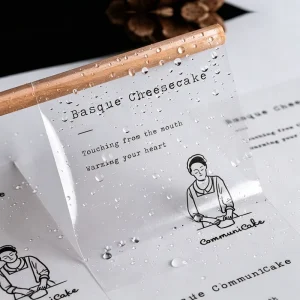 Basque Cheesecake
—
Touching from the mouth
Warming your heart
CommuniCake
Basque
Touching from the mouth
Warming your heart
Basque Cheesecake
CommuniCake